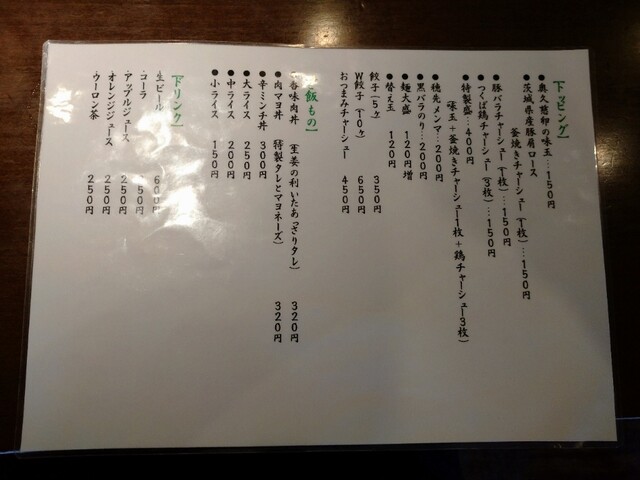 【トッピング】
●奥久慈卵の味玉…150円
●茨城県産豚肩ロース
釜焼きチャーシュー(1枚)…150円
●豚バラチャーシュー(1枚)…150円
●つくば鶏チャーシュー(3枚)…150円
●特製盛…400円
味玉+釜焼きチャーシュー1枚+鶏チャーシュー3枚)
●穂先メンマ…200円
●黒バラのり…200円
●麺大盛 120円増
●替え玉 120円
餃子(5ヶ) 350円
W餃子(10ヶ) 650円
おつまみチャーシュー 450円
飯もの】
香味肉丼 (生姜の利いたあっさりタレ) 320円
●肉マヨ丼 特製タレとマヨネーズ) 320円
●辛ミンチ丼 300円
●大ライス 250円
●中ライス 200円
●小ライス 150円
【ドリンク】
生ビール 600円
・コーラ 250円
・アップルジュース 250円
・オレンジジュース 250円
・ウーロン茶 250円